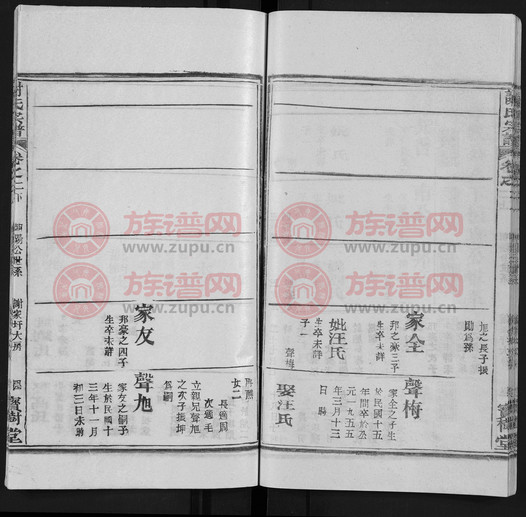 旭之長子振
則爲孫
家全
邦之歉三子
生卒未詳
妣汪氏
生卒未詳
子一
聲梅
聲梅
家全之子生
於民國十五
年間卒於公
元一九五五
年三月十三
日時
娶汪氏
女二
長適周
次適毛
立親兄聲旭
之次子振坤
爲嗣
家友
邦豪之四子
生卒未詳
聲旭
家友之嗣子
生於民國十
三年十一月
初三日亥時
謝氏宗譜
卷之二下
四房公世系
謝家圩大房
寶樹堂
族谱网
www.zupu.cn
族谱网
www.zupu.cn